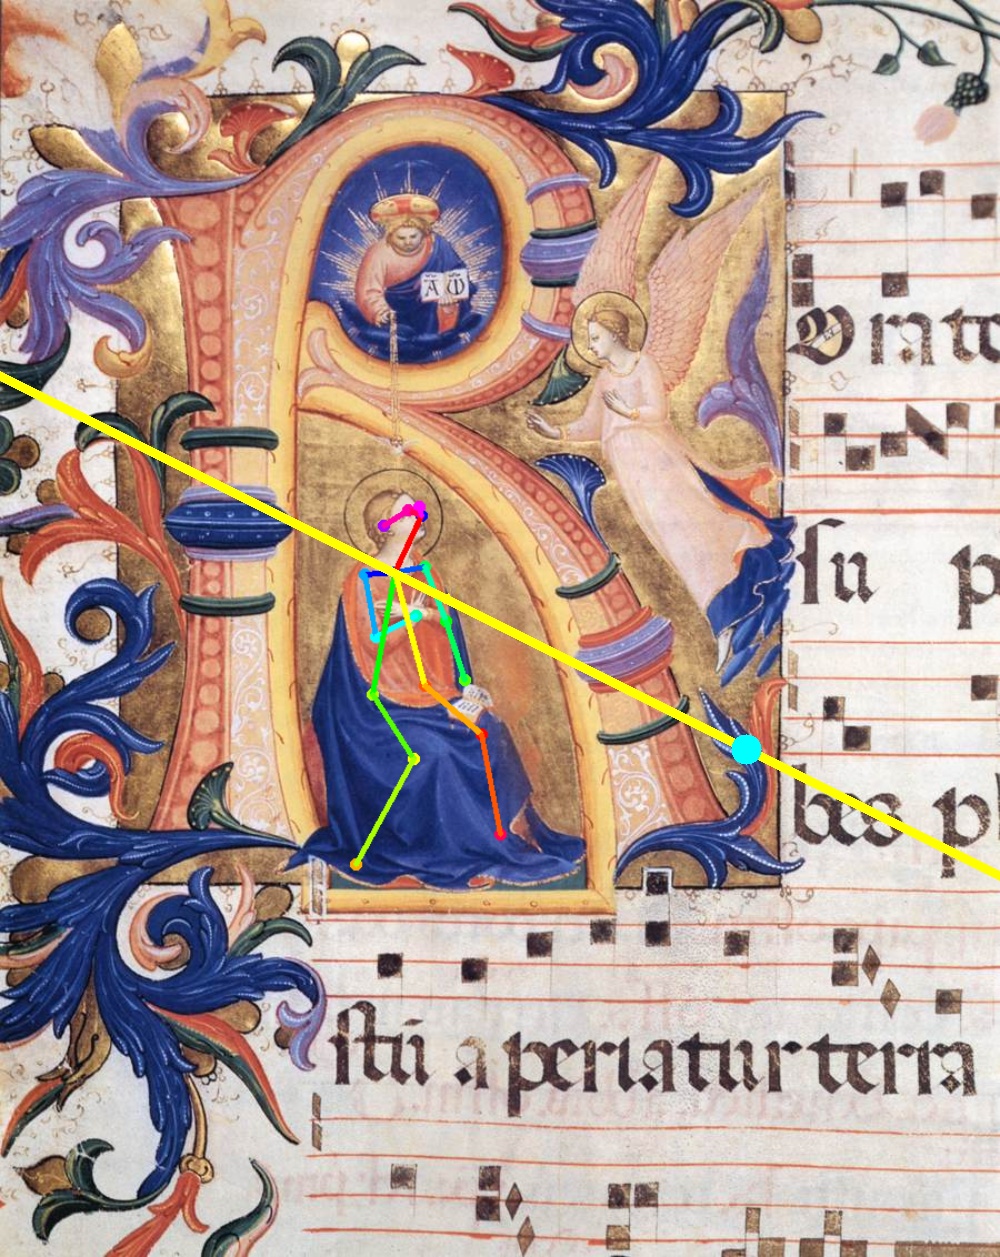 A Ѡ
Orate
su p
bes pl
stū aperiatur terra